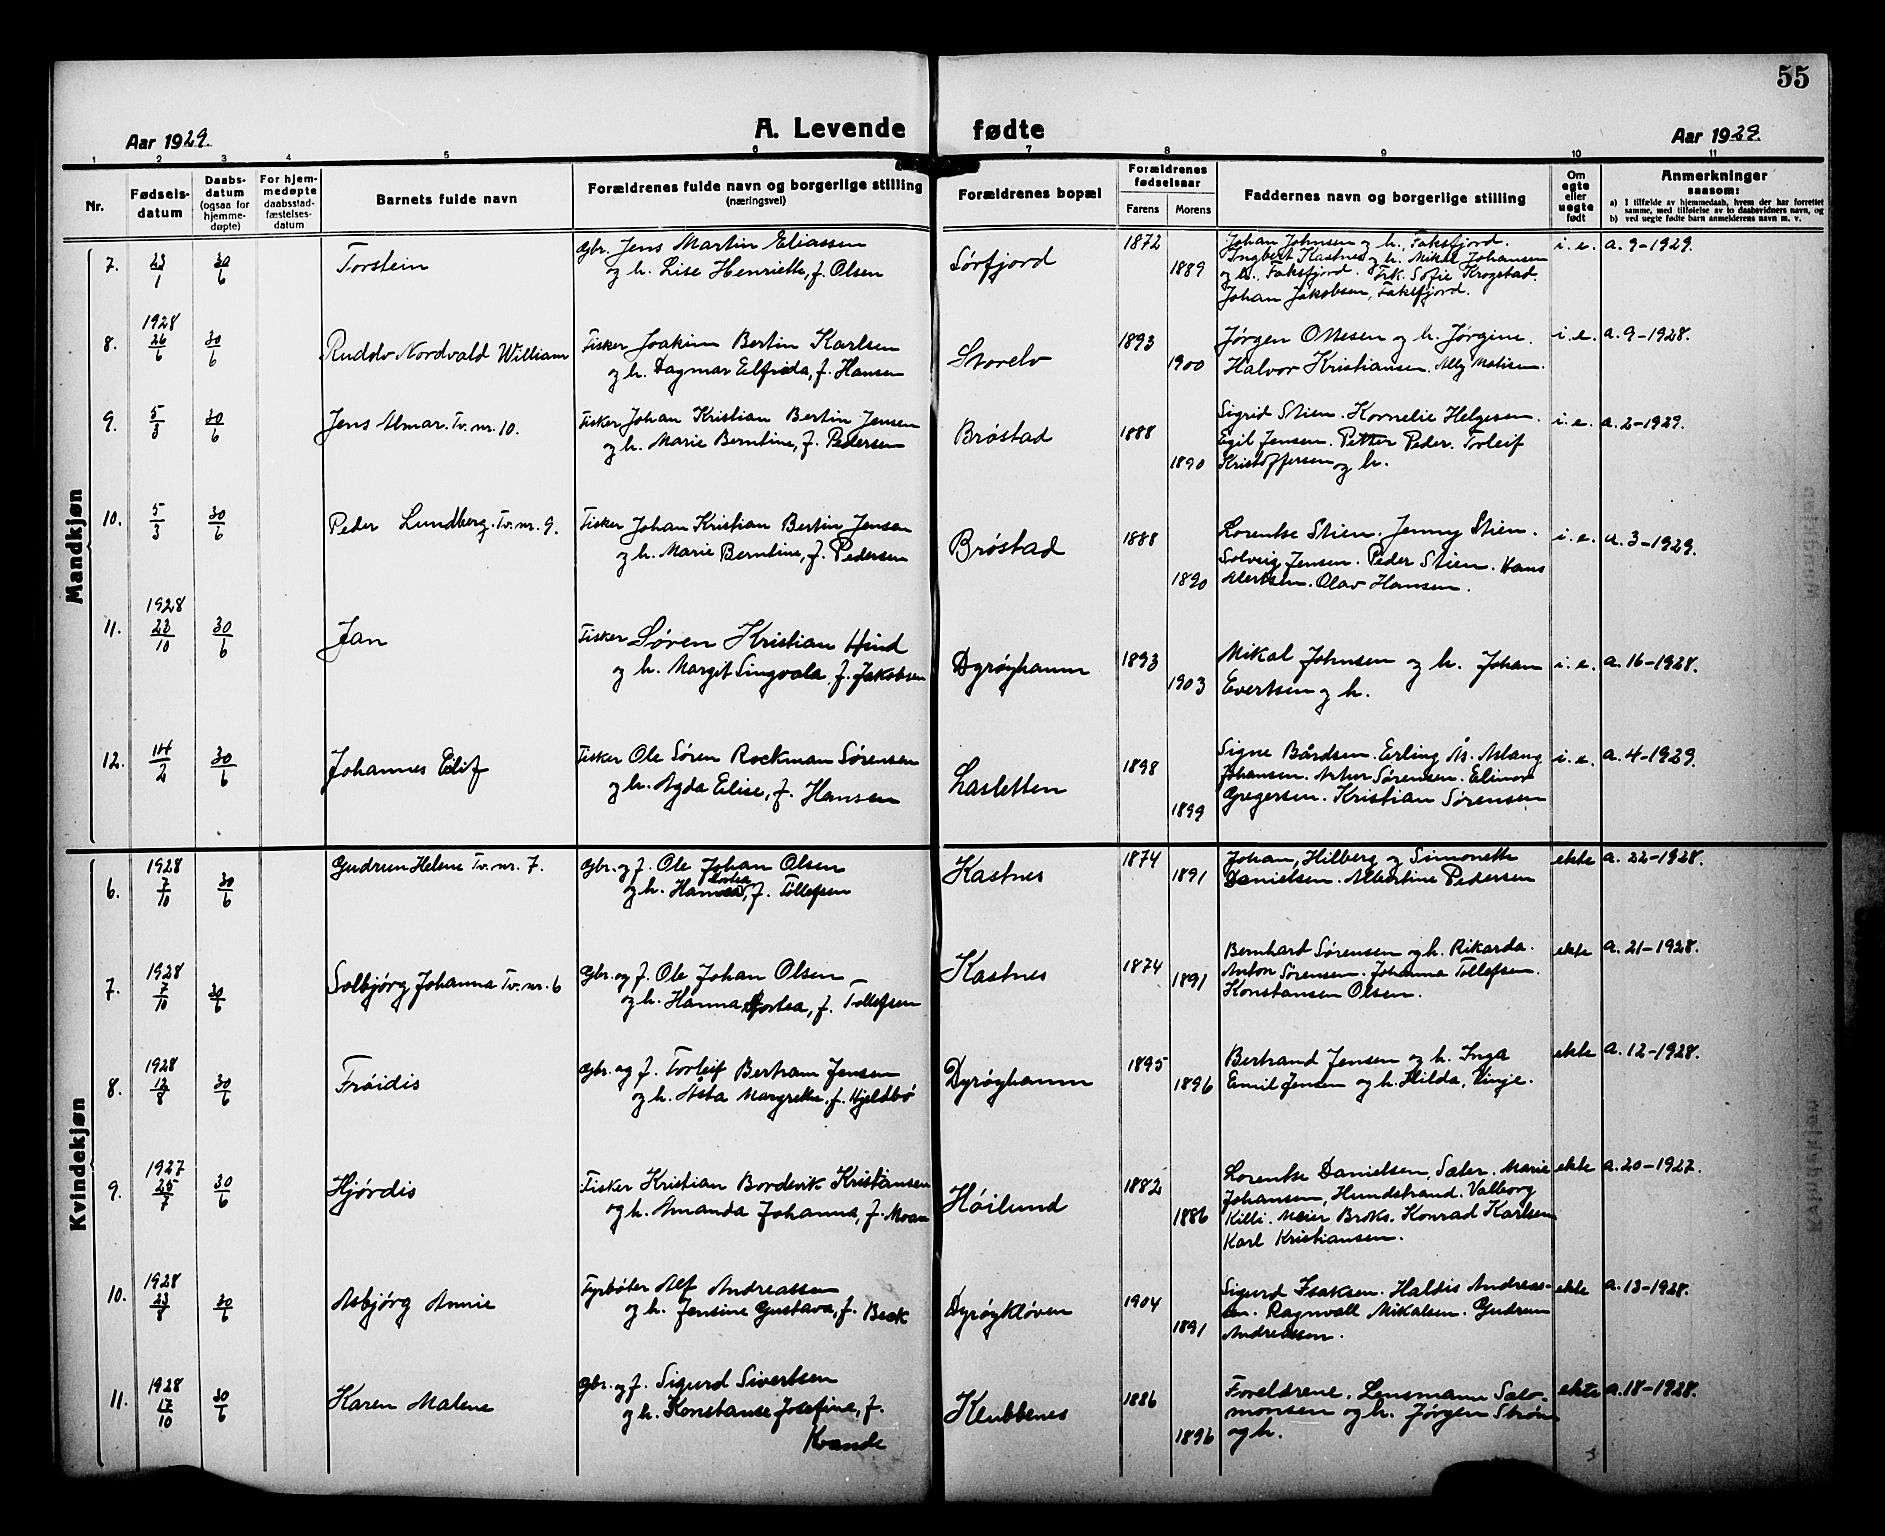 55
A. Levende fødte
Aar 1929.
Aar 1929.
1 2 3 4 5 6 7 8 9 10 11
Nr.
Fødsels-
datum
Daabs-
datum
(ogsaa for
hjemme-
døpte)
For hjem-
medøpte
daabsstad-
fæstelses-
datum
Barnets fulde navn
Forældrenes fulde navn og borgerlige stilling
(næringsvei)
Forældrenes bopæl
Forældrenes
fødselsaar
Farens Morens
Faddernes navn og borgerlige stilling
Om
egte
eller
uegte
født
Anmerkninger
saasom:
a) I tilfælde av hjemmedaab, hvem der har forrettet
samme, med tilføielse av to daabsvidners navn, og
b) ved uegte fødte barn anmelderens navn m. v.
Mandkjøn
7. 23/1 30/6 Torstein
Gbr. Jens Martin Eliassen
og h. Lise Henriette, f. Olsen
Sørfjord 1872 1889
Johan Johnsen og h., Faksfjord.
Ingbert Kastnes og h. Mikal Johansen
og h. Faksfjord. Frk. Sofie Krogstad.
Johan Jakobsen, Faksfjord.
i. e. a. 9-1929.
8. 1928 26/6 30/6 Rudolv Nordvald William
Fisker Joakim Bertin Karlsen
og h. Dagmar Elfrida, f. Hansen
Storelv 1893 1900
Jørgen Ottesen og h. Jørgine.
Halvor Kristiansen. Ally Matisen.
i. e. a. 9-1928.
9. 5/3 30/6 Jens Almar. Tv. nr. 10.
Fisker Johan Kristian Bertin Jensen
og h. Marie Berntine, f. Pedersen
Brøstad 1888 1890
Sigrid Stien. Kornelie Helgesen.
Egil Jensen. Petter Peder. Torleif
Kristoffersen og h.
i. e. a. 2-1929.
10. 5/3 30/6 Peder Lundberg. Tv. nr. 9.
Fisker Johan Kristian Bertin Jensen
og h. Marie Berntine, f. Pedersen
Brøstad 1888 1890
Lorentse Stien. Jenny Stien.
Solveig Jensen. Peder Stien. Hans
Albertsen. Olav Hansen.
i. e. a. 3-1929.
11. 1928 23/10 30/6 Jan
Fisker Søren Kristian Hind
og h. Margit Singvala, f. Jakobsen
Dyrøyhamn 1893 1903
Mikal Johnsen og h. Johan
Evertsen og h.
i. e. a. 16-1928.
12. 14/2 30/6 Johannes Eilif
Fisker Ole Søren Rockman Sørensen
og h. Agda Elise, f. Hansen
Lasletten 1898 1899
Signe Bårdsen. Erling Ås. Aslaug
Johansen. Artur Sørensen. Elinor
Gregersen. Kristian Sørensen
i. e. a. 4-1929.
Kvindekjøn
6. 1928 7/10 30/6 Gudrun Helene Tv. nr. 7.
Gbr. og f. Ole Johan Olsen
og h. Hanna Dortea, f. Tollefsen
Kastnes 1874 1891
Johan, Hilberg og Simonette
Danielsen. Albertine Pedersen
ekte a. 22-1928.
7. 1928 7/10 30/6 Solbjørg Johanna Tv. nr. 6
Gbr. og f. Ole Johan Olsen
og h. Hanna Dortea, f. Tollefsen
Kastnes 1874 1891
Bernhart Sørensen og h. Rikarda.
Anton Sørensen. Johanna Tollefsen.
Konstansen Olsen.
ekte a. 21-1928.
8. 1928 12/8 30/6 Frøidis
Gbr. og f. Torleif Bertram Jensen
og h. Asta Margrethe, f. Hjeldbø
Dyrøyhamn 1895 1896
Bertrand Jensen og h. Inga
Emil Jensen og h. Hilda, Vinje.
ekte a. 12-1928.
9. 1927 25/7 30/6 Hjørdis
Fisker Kristian Bordevik Kristiansen
og h. Amanda Johanna, f. Moan
Høilund 1882 1886
Lorentse Danielsen, Sæter. Marie
Johansen, Hundstrand. Valborg
Killi. Meier Broks. Konrad Karlsen
Karl Kristiansen.
ekte a. 20-1927.
10. 1928 23/8 30/6 Asbjørg Annie
Fyrbøter Alf Andreassen
og h. Jensine Gustava, f. Beck
Dyrøykløven 1904 1891
Sigurd Isaksen. Haldis Andreas-
sen. Ragnvall Mikalsen. Gudrun
Andreassen.
ekte a. 13-1928.
11. 1928 17/10 30/6 Karen Malene
Gbr. og f. Sigurd Sivertsen
og h. Konstanse Josefine, f.
Kvande
Klubbenes 1886 1896
Foreldrene. Lensmann Salo-
monsen og h. Jørgen Strøm
og h.
ekte a. 18-1928.